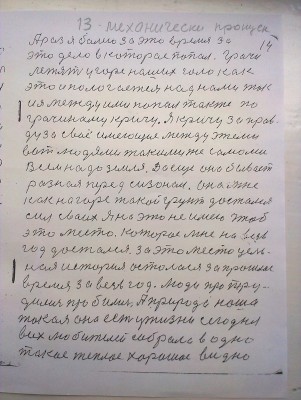 13 - механически пропуск
14
А раз я балию за это время за
это дело в которое попал. Грачи
летят у горе наших голов как
это и пологается над нами так
и я между ими попал также по
грачиному кричу. Я кричу за прав-
ду за своё имеющие между этеми
вот людями такими же самоми
Всем надо земля. Да ещё она бывает
разная перед сизоная. она мне
как на горе такой грунт достался
сил своих я на это не имею чтоб
это место, которое мне на весь
год достался. За это место цель-
ная история осталася за прошлое
время за весь год. Люди про тру-
дилися про били. А природа наша
такая она есть у жизни сегодня
всех любителей собрала в одно
такое теплое хорошое видно